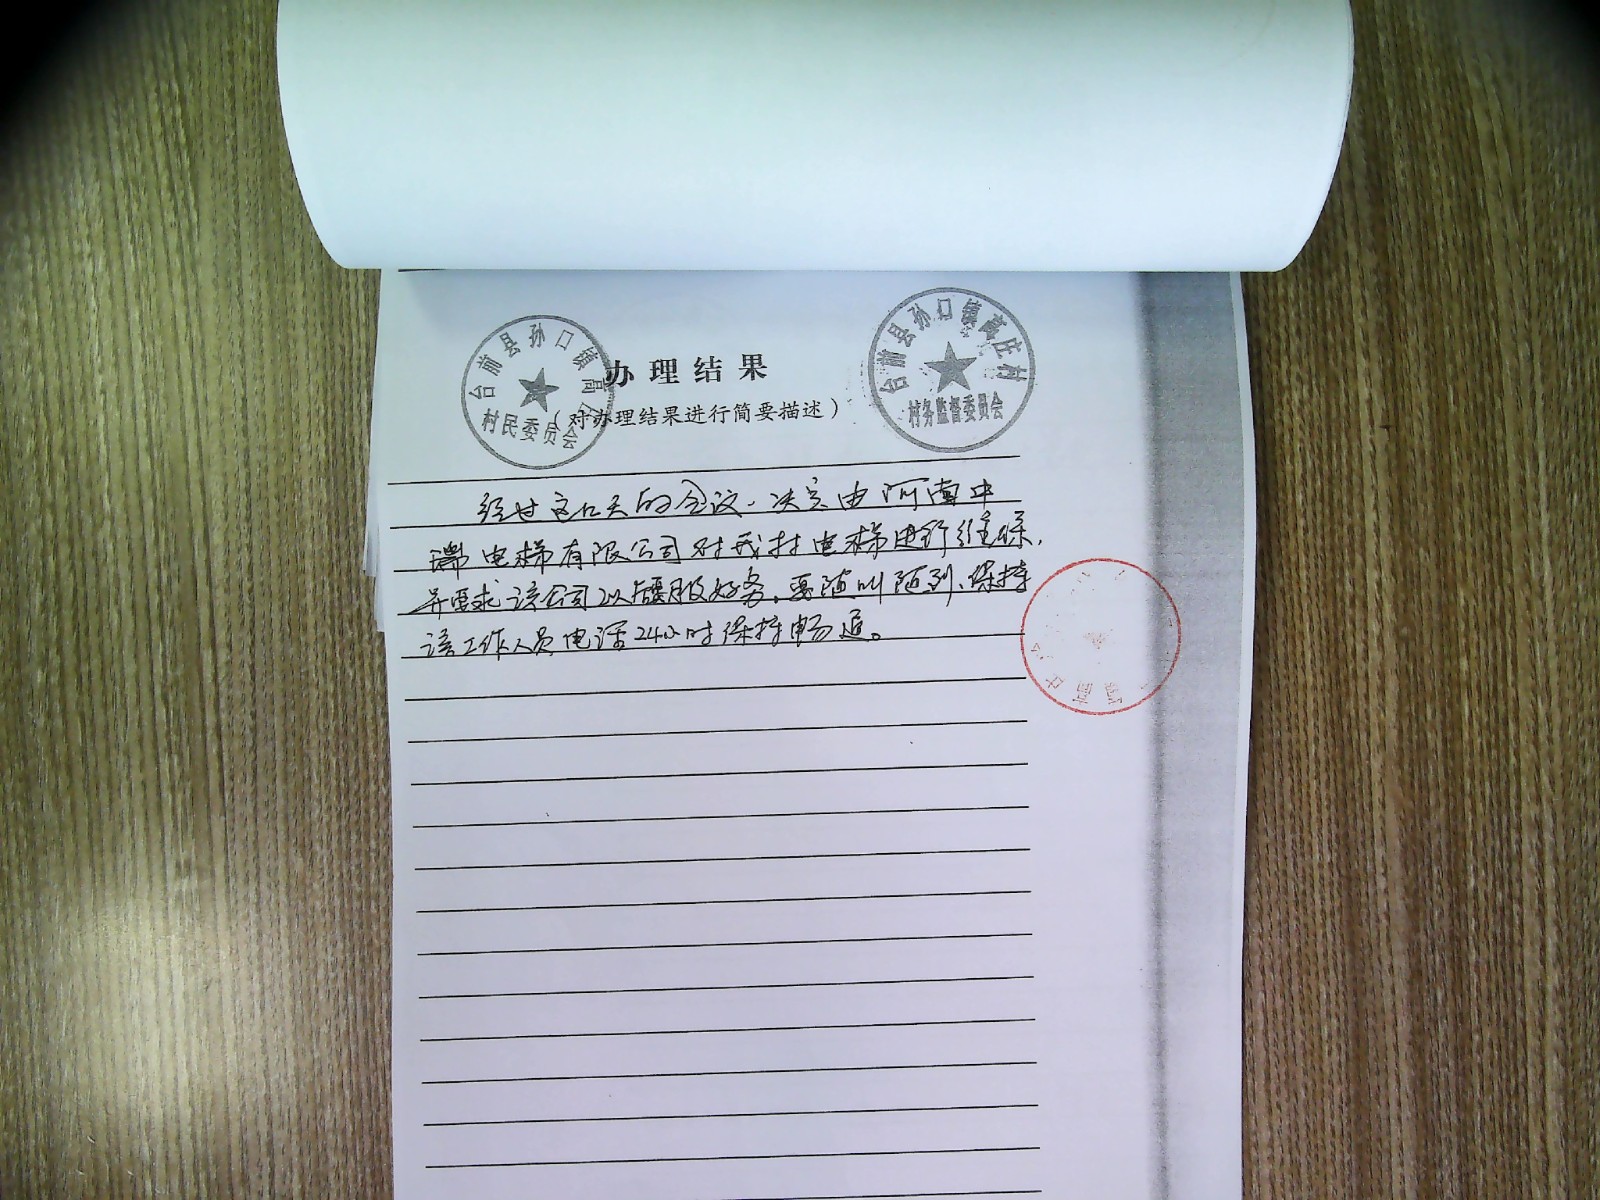 台前县孙口镇高
村民委员会
台前县孙口镇高庄村
村务监督委员会
办理结果
（对办理结果进行简要描述）
经过这几天的会议，决定由河南中
瑞电梯有限公司对我村电梯进行维保，
并要求该公司以后要服好务，要随叫随到，保持
该工作人员电话24小时保持畅通。